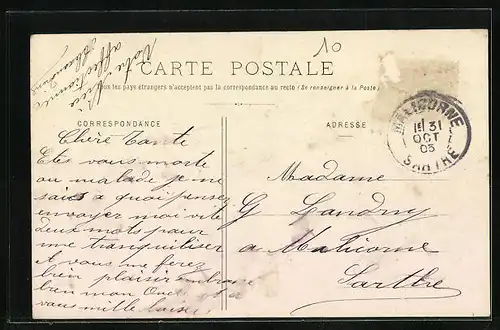 10
Votre nièce
affectionnée
Alexandrine
CARTE POSTALE
Tous les pays étrangers n'acceptent pas la correspondance au recto (Se renseigner à la Poste)
CORRESPONDANCE
ADRESSE
MALICORNE
31
OCT
05
SARTHE
Chère Tante
Etes vous morte
ou malade je ne
sais a quoi pensez
envoyer moi vite
deux mots pour
me tranquiliser
et vous me ferez
bien plaisir embrase
bien mon Oncle et a
vous mille baisers
Madame
G Landry
a Malicorne
Sarthe